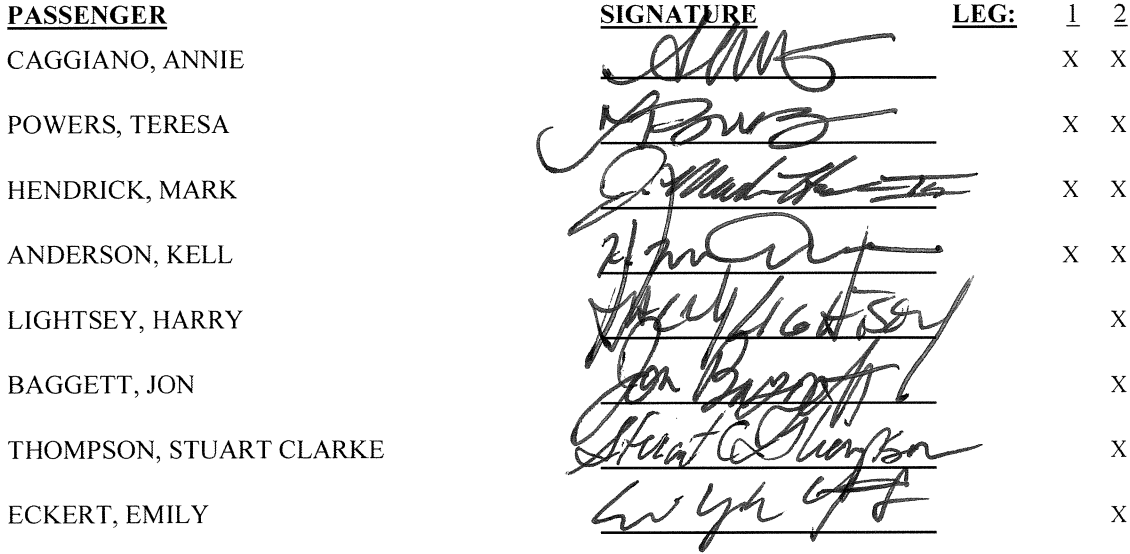 PASSENGER SIGNATURE LEG: 1 2
CAGGIANO, ANNIE X X
POWERS, TERESA X X
HENDRICK, MARK J. Mark X X
ANDERSON, KELL X X
LIGHTSEY, HARRY Harry Lightsey X
BAGGETT, JON Jon Baggett X
THOMPSON, STUART CLARKE Stuart C Thompson X
ECKERT, EMILY X